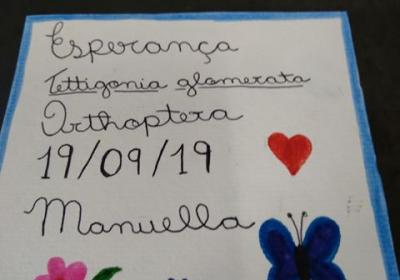 Esperança
Tettigonia glomerata
Orthoptera
19/09/19
Manuella